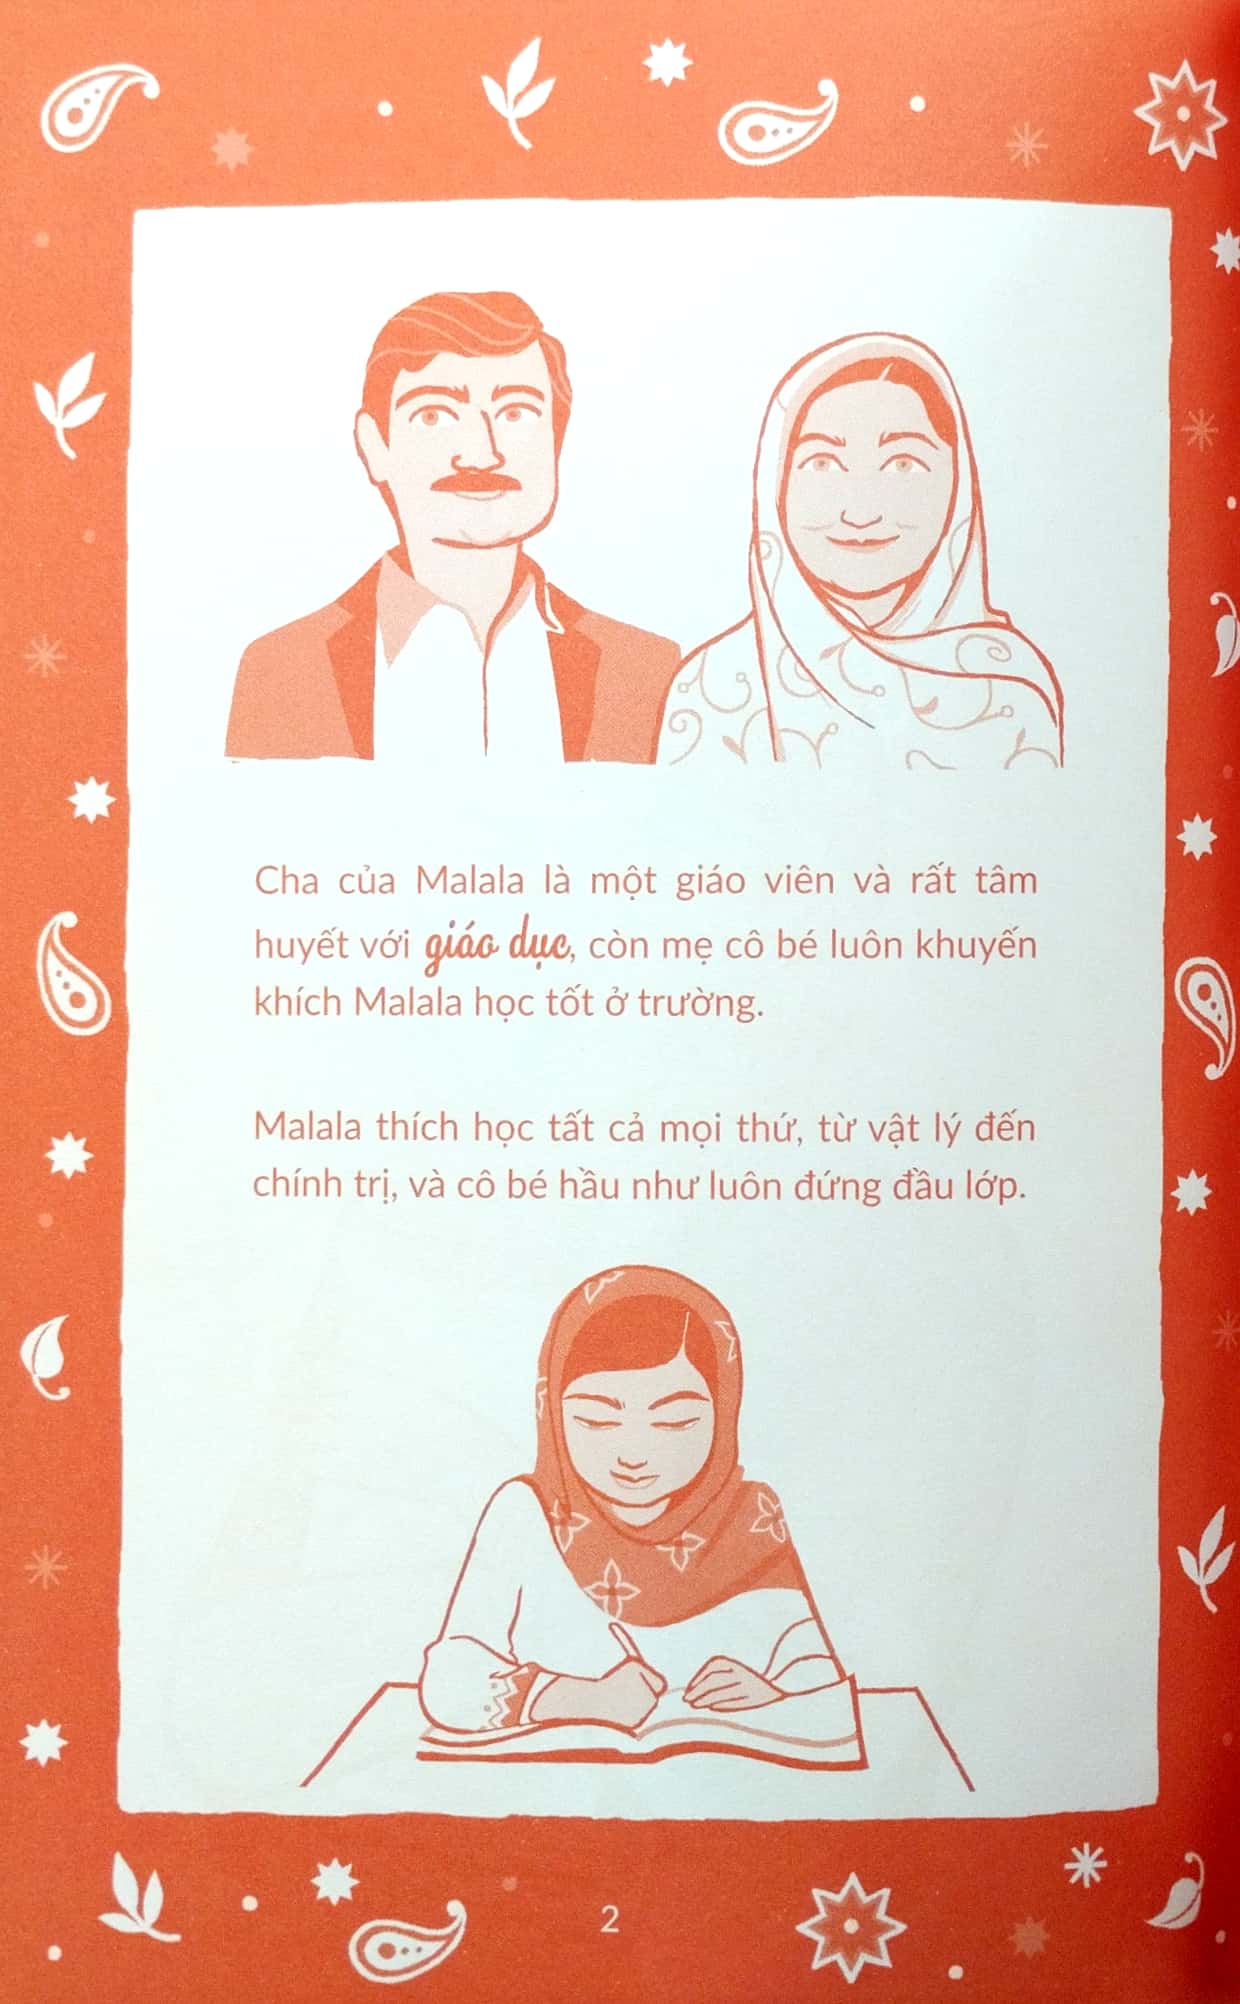 Cha của Malala là một giáo viên và rất tâm
huyết với giáo dục, còn mẹ cô bé luôn khuyến
khích Malala học tốt ở trường.
Malala thích học tất cả mọi thứ, từ vật lý đến
chính trị, và cô bé hầu như luôn đứng đầu lớp.
2